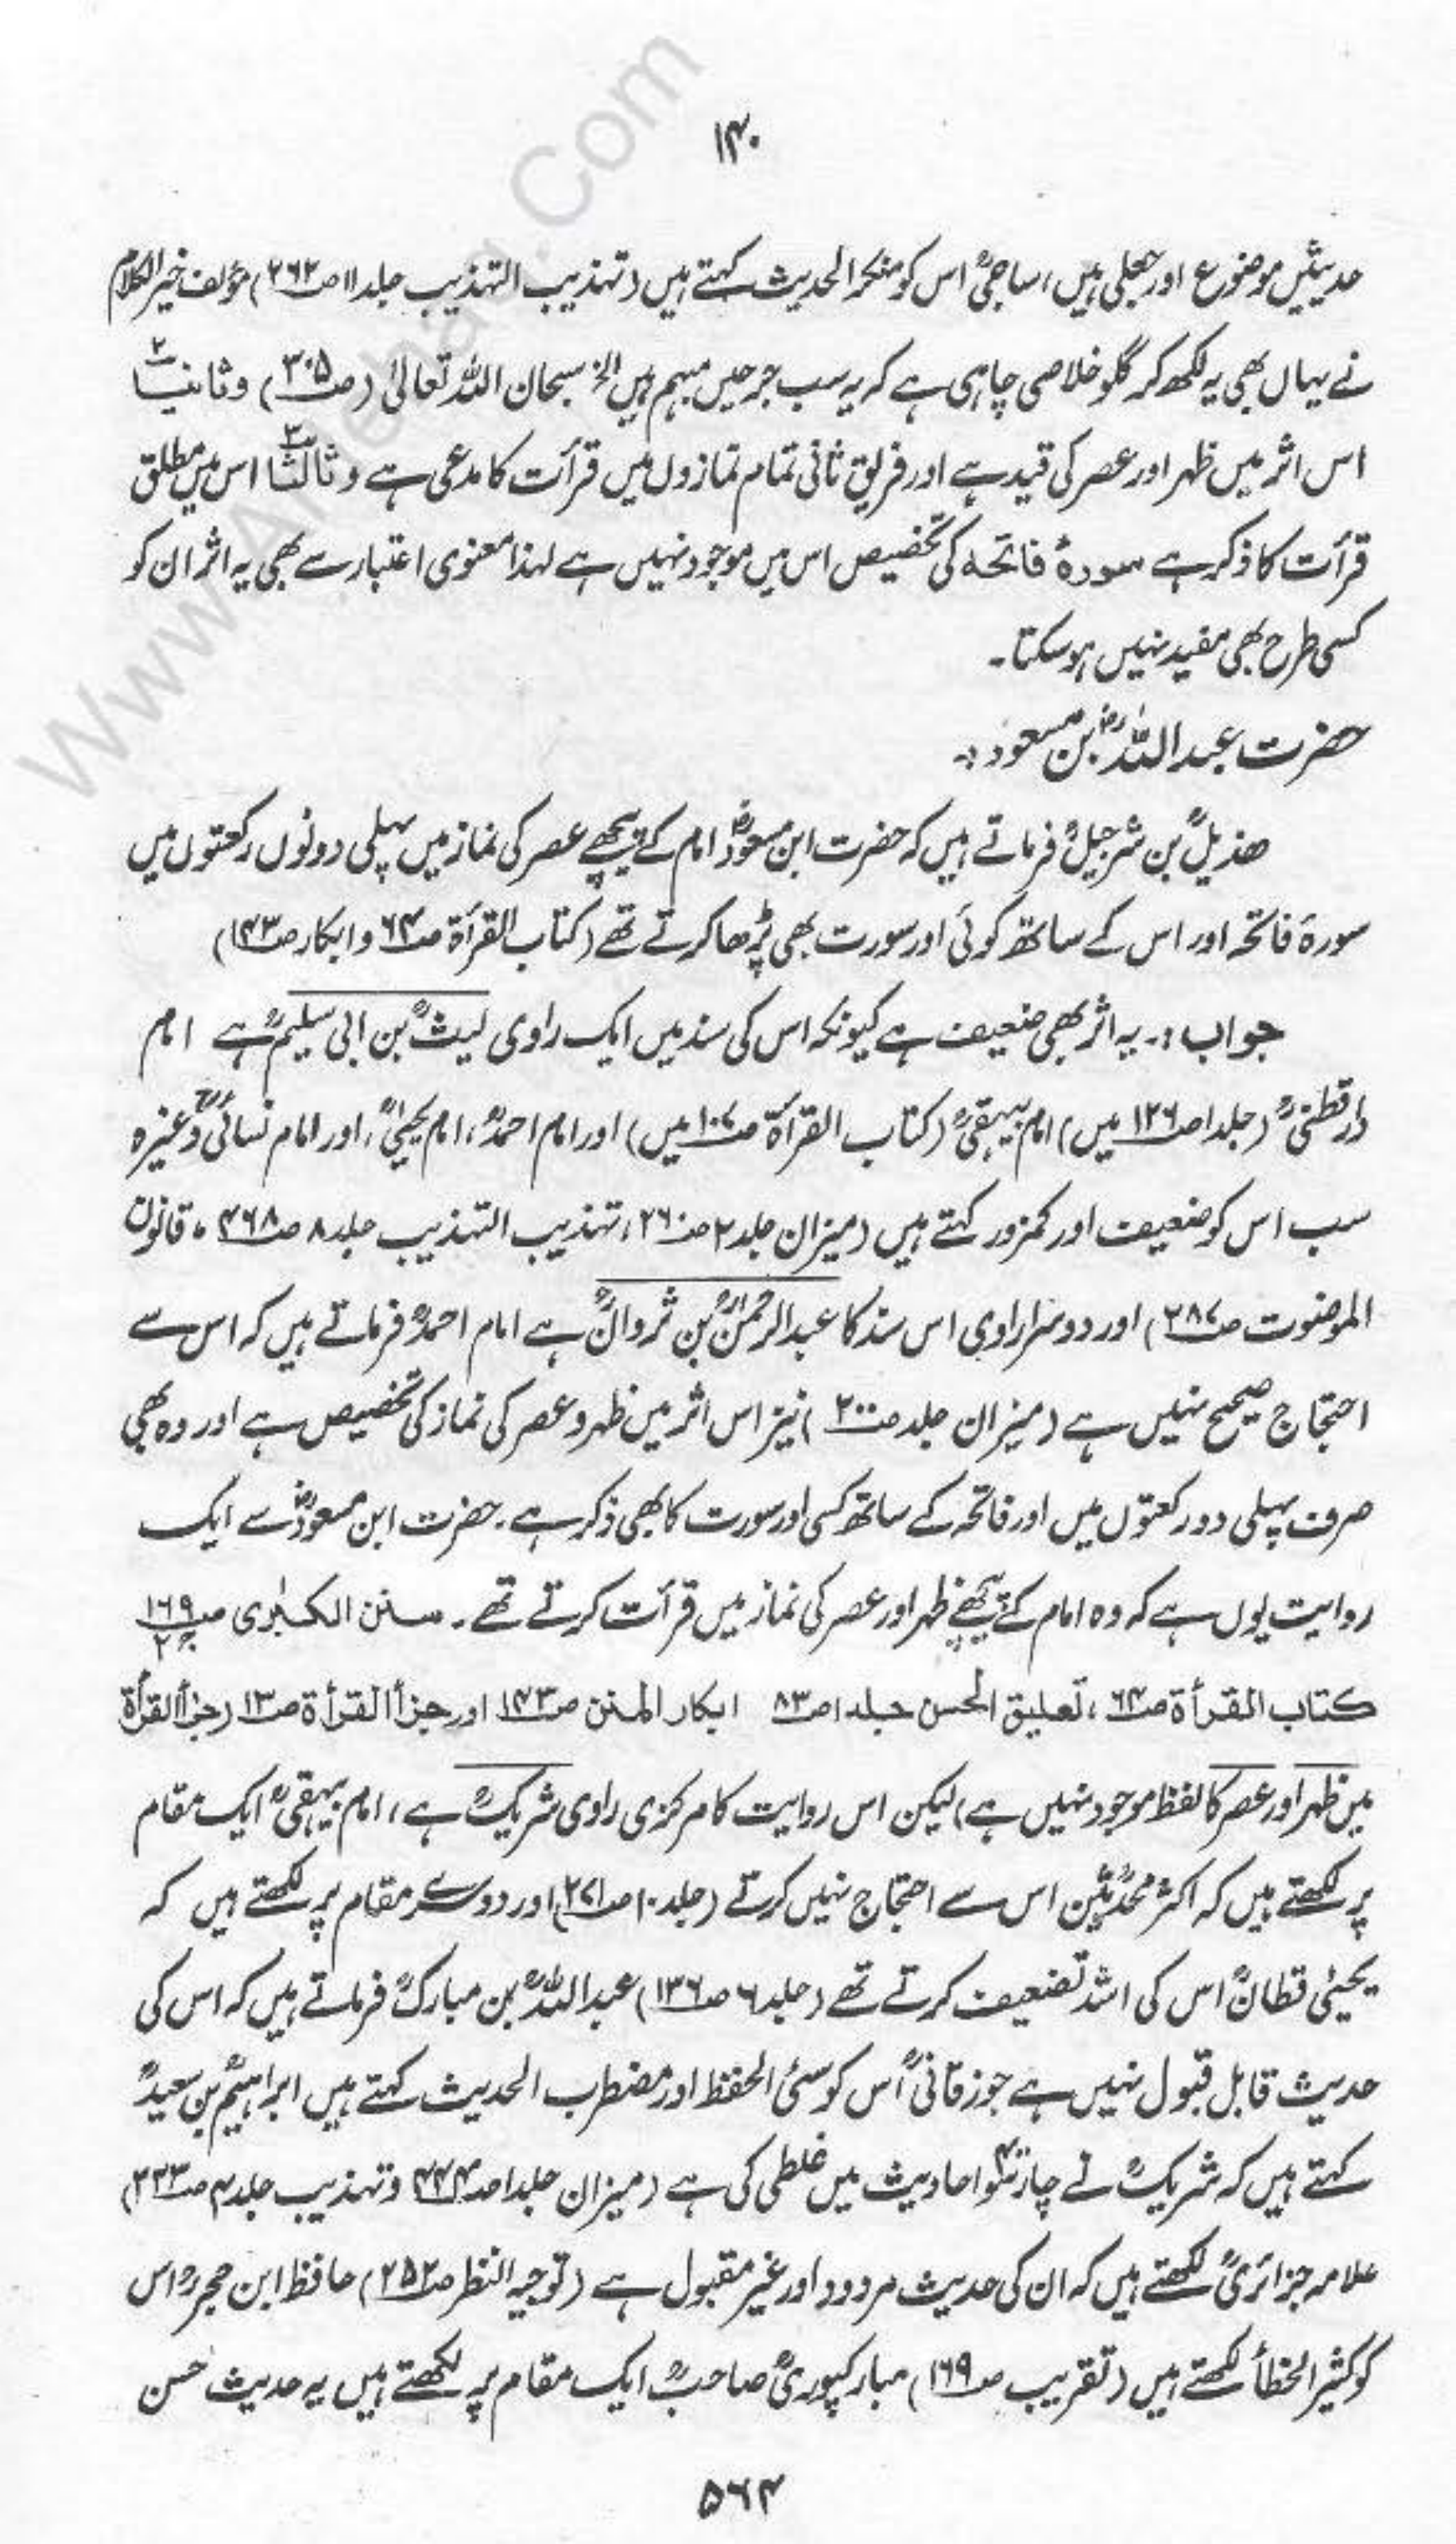 ۱۴۰
حدیثیں موضوع اور جعلی ہیں، ساجیؒ اس کو منکر الحدیث کہتے ہیں (تہذیب التہذیب جلد ۱۱ ص۲۶۲) مؤلف خیر الکلام
نے یہاں بھی یہ لکھ کر گلو خلاصی چاہی ہے کہ یہ سب جرحیں مبہم ہیں الخ سبحان اللہ تعالیٰ (ص۳۰۵) وثانیاً۲
اس اثر میں ظہر اور عصر کی قید ہے اور فریق ثانی تمام نمازوں میں قرأت کا مدعی ہے وثالثاً۳ اس میں مطلق
قرأت کا ذکر ہے سورۂ فاتحہ کی تخصیص اس میں موجود نہیں ہے لہٰذا معنوی اعتبار سے بھی یہ اثر ان کو
کسی طرح بھی مفید نہیں ہو سکتا۔
حضرت عبد اللہؓ بن مسعود :۔
ھذیلؒ بن شرجیلؒ فرماتے ہیں کہ حضرت ابن مسعودؓ امام کے پیچھے عصر کی نماز میں پہلی دونوں رکعتوں میں
سورۂ فاتحہ اور اس کے ساتھ کوئی اور سورت بھی پڑھا کرتے تھے (کتاب القرأۃ ص۶۴ و ابکار ص۱۴۳)
جواب :۔ یہ اثر بھی ضعیف ہے کیونکہ اس کی سند میں ایک راوی لیثؒ بن ابی سلیمؒ ہے امام
دارقطنیؒ (جلد ۱ ص۱۲۶ میں) امام بیہقیؒ (کتاب القرأۃ ص۱۰۷ میں) اور امام احمدؒ، امام یحییٰؒ، اور امام نسائیؒ وغیرہ
سب اس کو ضعیف اور کمزور کہتے ہیں (میزان جلد ۲ ص۲۶۰، تہذیب التہذیب جلد ۸ ص۴۶۸، قانون
الموضوت ص۲۸۷) اور دوسرا راوی اس سند کا عبد الرحمٰنؒ بن ثروانؒ ہے امام احمدؒ فرماتے ہیں کہ اس سے
احتجاج صحیح نہیں ہے (میزان جلد ص۲۰۰) نیز اس اثر میں ظہر و عصر کی نماز کی تخصیص ہے اور وہ بھی
صرف پہلی دو رکعتوں میں اور فاتحہ کے ساتھ کسی اور سورت کا بھی ذکر ہے۔ حضرت ابن مسعودؓ سے ایک
روایت یوں ہے کہ وہ امام کے پیچھے ظہر اور عصر کی نماز میں قرأت کرتے تھے۔ سنن الکبرٰی ص۱۶۹ ج۲
کتاب القرأۃ ص۶۴، تعلیق الحسن جلد ۱ ص۸۳ ابکار المنن ص۱۴۳ اور جزأ القرأۃ ص۱۳ (جزأ القرأۃ
میں ظہر اور عصر کا لفظ موجود نہیں ہے) لیکن اس روایت کا مرکزی راوی شریکؒ ہے، امام بیہقیؒ ایک مقام
پر لکھتے ہیں کہ اکثر محدثینؒ اس سے احتجاج نہیں کرتے (جلد ۱۰ ص۲۷۱) اور دوسرے مقام پر لکھتے ہیں کہ
یحییٰ قطانؒ اس کی اشد تضعیف کرتے تھے (جلد ۶ ص۱۳۶) عبد اللہؒ بن مبارکؒ فرماتے ہیں کہ اس کی
حدیث قابل قبول نہیں ہے جوزقانیؒ اُس کو سئ الحفظ اور مضطرب الحدیث کہتے ہیں ابراہیمؒ بن سعیدؒ
کہتے ہیں کہ شریکؒ نے چار سو احادیث میں غلطی کی ہے (میزان جلد ۱ ص۴۴۴ وتہذیب جلد ۴ ص۳۳۳)
علامہ جزائریؒ لکھتے ہیں کہ ان کی حدیث مردود اور غیر مقبول ہے (توجیہ النظر ص۲۵۲) حافظ ابن حجرؒ اس
کو کثیر الخطأ لکھتے ہیں (تقریب ص۱۶۹) مبارکپوریؒ صاحبؒ ایک مقام پر لکھتے ہیں یہ حدیث حسن
۵۶۴